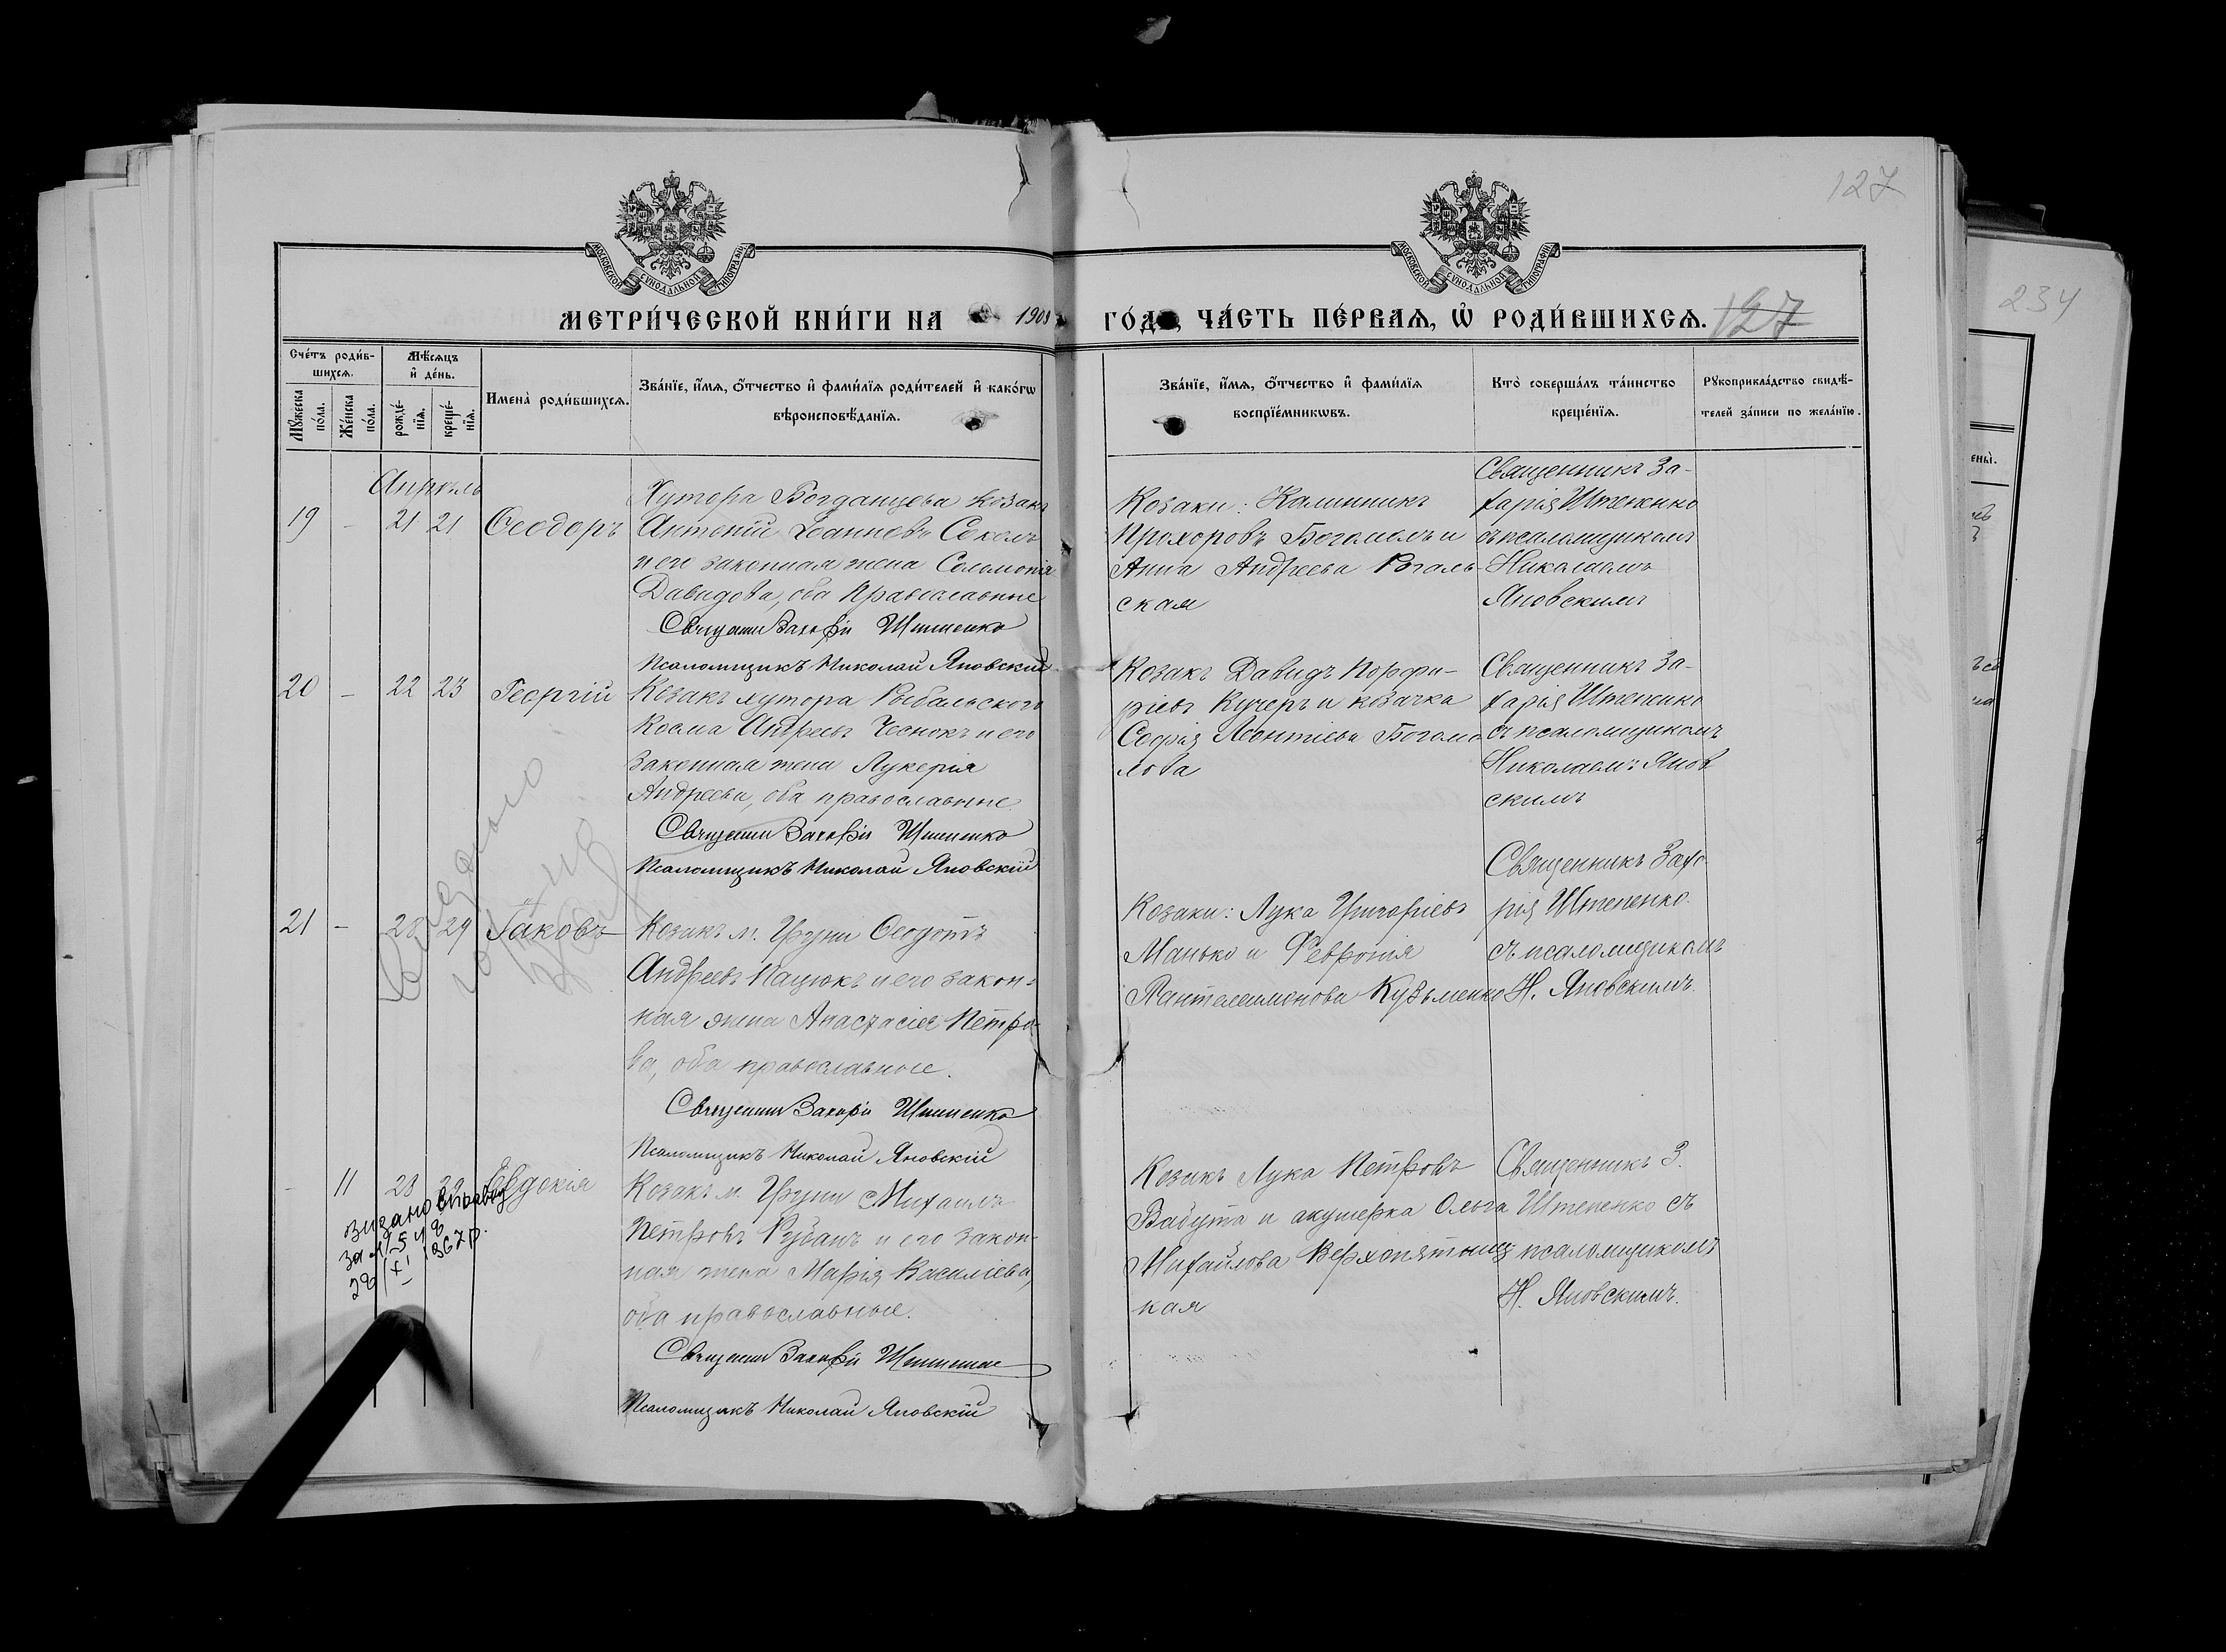 127
234
МОСКОВСКОЙ СѴНОДАЛЬНОЙ ТИПОГРАФІИ
МОСКОВСКОЙ СѴНОДАЛЬНОЙ ТИПОГРАФІИ
МЕТРИ́ЧЕСКОЙ КНИ́ГИ НА 1908 ГО́ДЪ, ЧА́СТЬ ПЕ́РВАѦ, Ѡ РОДИ́ВШИХСѦ. 127
Сче́тъ роди́в-
шихсѧ.
Мꙋ́жеска по́ла.
Же́нска по́ла.
Мѣ́сѧцъ
и҆ де́нь.
рожде́-
нїѧ.
креще́-
нїѧ.
Имена̀ роди́вшихсѧ.
Зва́нїе, и҆́мѧ, ѻ҆́тчество и҆ фами́лїѧ роди́телей и҆ како́гѡ
вѣроисповѣ́данїѧ.
Зва́нїе, и҆́мѧ, ѻ҆́тчество и҆ фами́лїѧ
воспрїе́мникѡвъ.
Кто̀ соверша́лъ та́инство
креще́нїѧ.
Рꙋкоприкла́дство свидѣ́-
телей за́писи по жела́нїю.
Апрѣль
19 - 21 21 Ѳеодоръ
Хутора Богданцева козакъ
Антоній Іоанновъ Соколъ
и его законная жена Соломонія
Давидова, оба православные
Священ Захарій Штепенко
Псаломщикъ Николай Яновскій
Козаки: Калинникъ
Прохоровъ Богомолъ и
Анна Андреева
ская
Священникъ За-
харія Штепенко
съ псаломщикомъ
Николаемъ
Яновскимъ
20 - 22 23 Георгій
Козакъ хутора Рыбальского
Косма Андреевъ Чеснокъ и его
законная жена Лукерія
Андреева, оба православные
Священ Захарій Штепенко
Псаломщикъ Николай Яновскій
Козакъ Давидъ Порфи-
ріевъ Кучеръ и козачка
Софія Леонтіева Богомо
лова
Священникъ За-
харія Штепенко
съ псаломщикомъ
Николаемъ Янов
скимъ
21 - 28 29 Іаковъ
Козакъ м. Груни Ѳеодотъ
Андреевъ Пацюкъ и его закон-
ная жена Анастасія Петро-
ва, оба православные.
Священ Захарій Штепенко
Псаломщикъ Николай Яновскій
Козаки: Лука Григоріевъ
Манько и Февронія
Пантелеимонова Кузьменко
Священникъ Заха-
рія Штепенко
съ псаломщикомъ
Н. Яновскимъ.
- 11 28 29 Евдокія
Козакъ м. Груни Михаилъ
Петровъ Рубанъ и его закон-
ная жена Марія Василіева,
оба православные.
Священ Захарій Штепенко
Псаломщикъ Николай Яновскій
Козакъ Лука Петровъ
Вабута и акушерка Ольга
Михайлова Верхопятниц
кая
Священникъ З.
Штепенко съ
псаломщикомъ
Н. Яновскимъ.